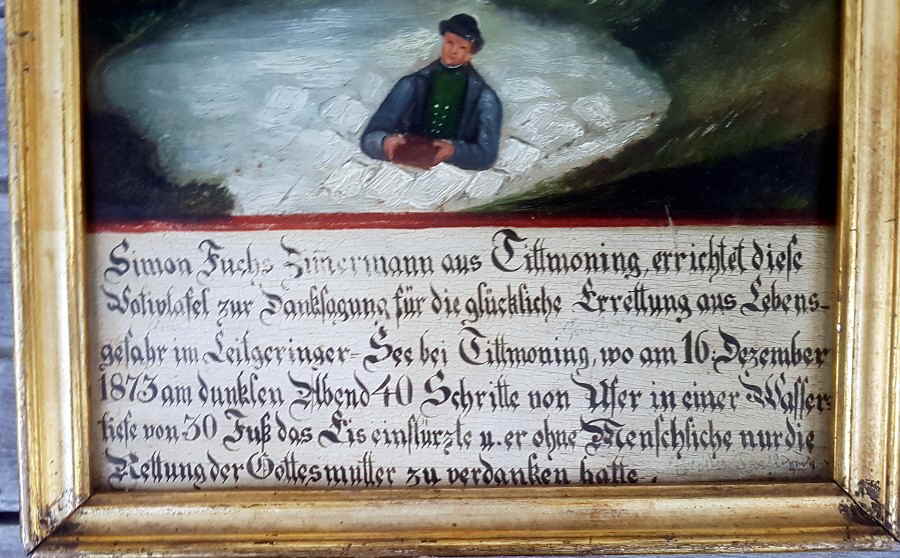 Simon Fuchs Zimermann aus Tittmoning, errichtet diese
Votivtafel zur Danksagung für die glückliche Errettung aus Lebens-
gefahr im Leitgeringer-See bei Tittmoning, wo am 16. Dezember
1873 am dunklen Abend 40 Schritte von Ufer in einer Wasser-
tiefe von 30 Fuß das Eis einstürzte u. er ohne Menschliche nur die
Rettung der Gottesmutter zu verdanken hatte.